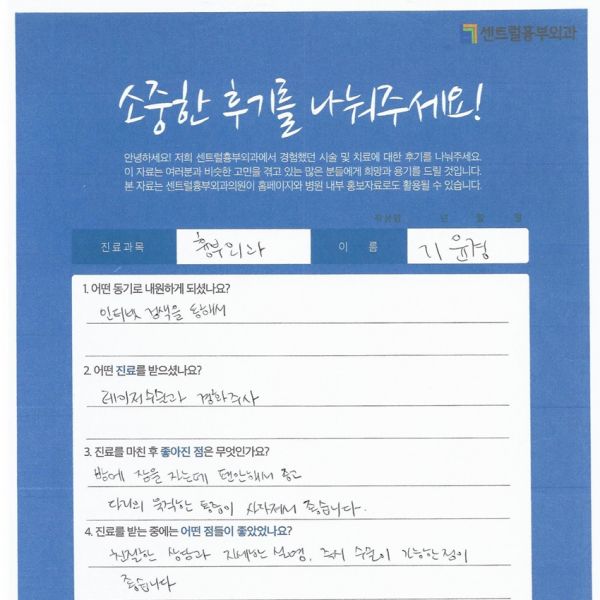 센트럴흉부외과
소중한 후기를 나눠주세요!
안녕하세요! 저희 센트럴흉부외과에서 경험했던 시술 및 치료에 대한 후기를 나눠주세요.
이 자료는 여러분과 비슷한 고민을 겪고 있는 많은 분들에게 희망과 용기를 드릴 것입니다.
본 자료는 센트럴흉부외과의원이 홈페이지와 병원 내부 홍보자료로도 활용될 수 있습니다.
작성일 년 월 일
진료과목 흉부외과 이 름 기윤경
1. 어떤 동기로 내원하게 되셨나요?
인터넷 검색을 통해서
2. 어떤 진료를 받으셨나요?
레이저수술과 경화주사
3. 진료를 마친 후 좋아진 점은 무엇인가요?
밤에 잠을 자는데 편안해서 좋고
다리의 묵직한 통증이 사라져서 좋습니다.
4. 진료를 받는 중에는 어떤 점들이 좋았었나요?
친절한 상담과 자세한 설명, 즉시 수술이 가능한점이
좋습니다